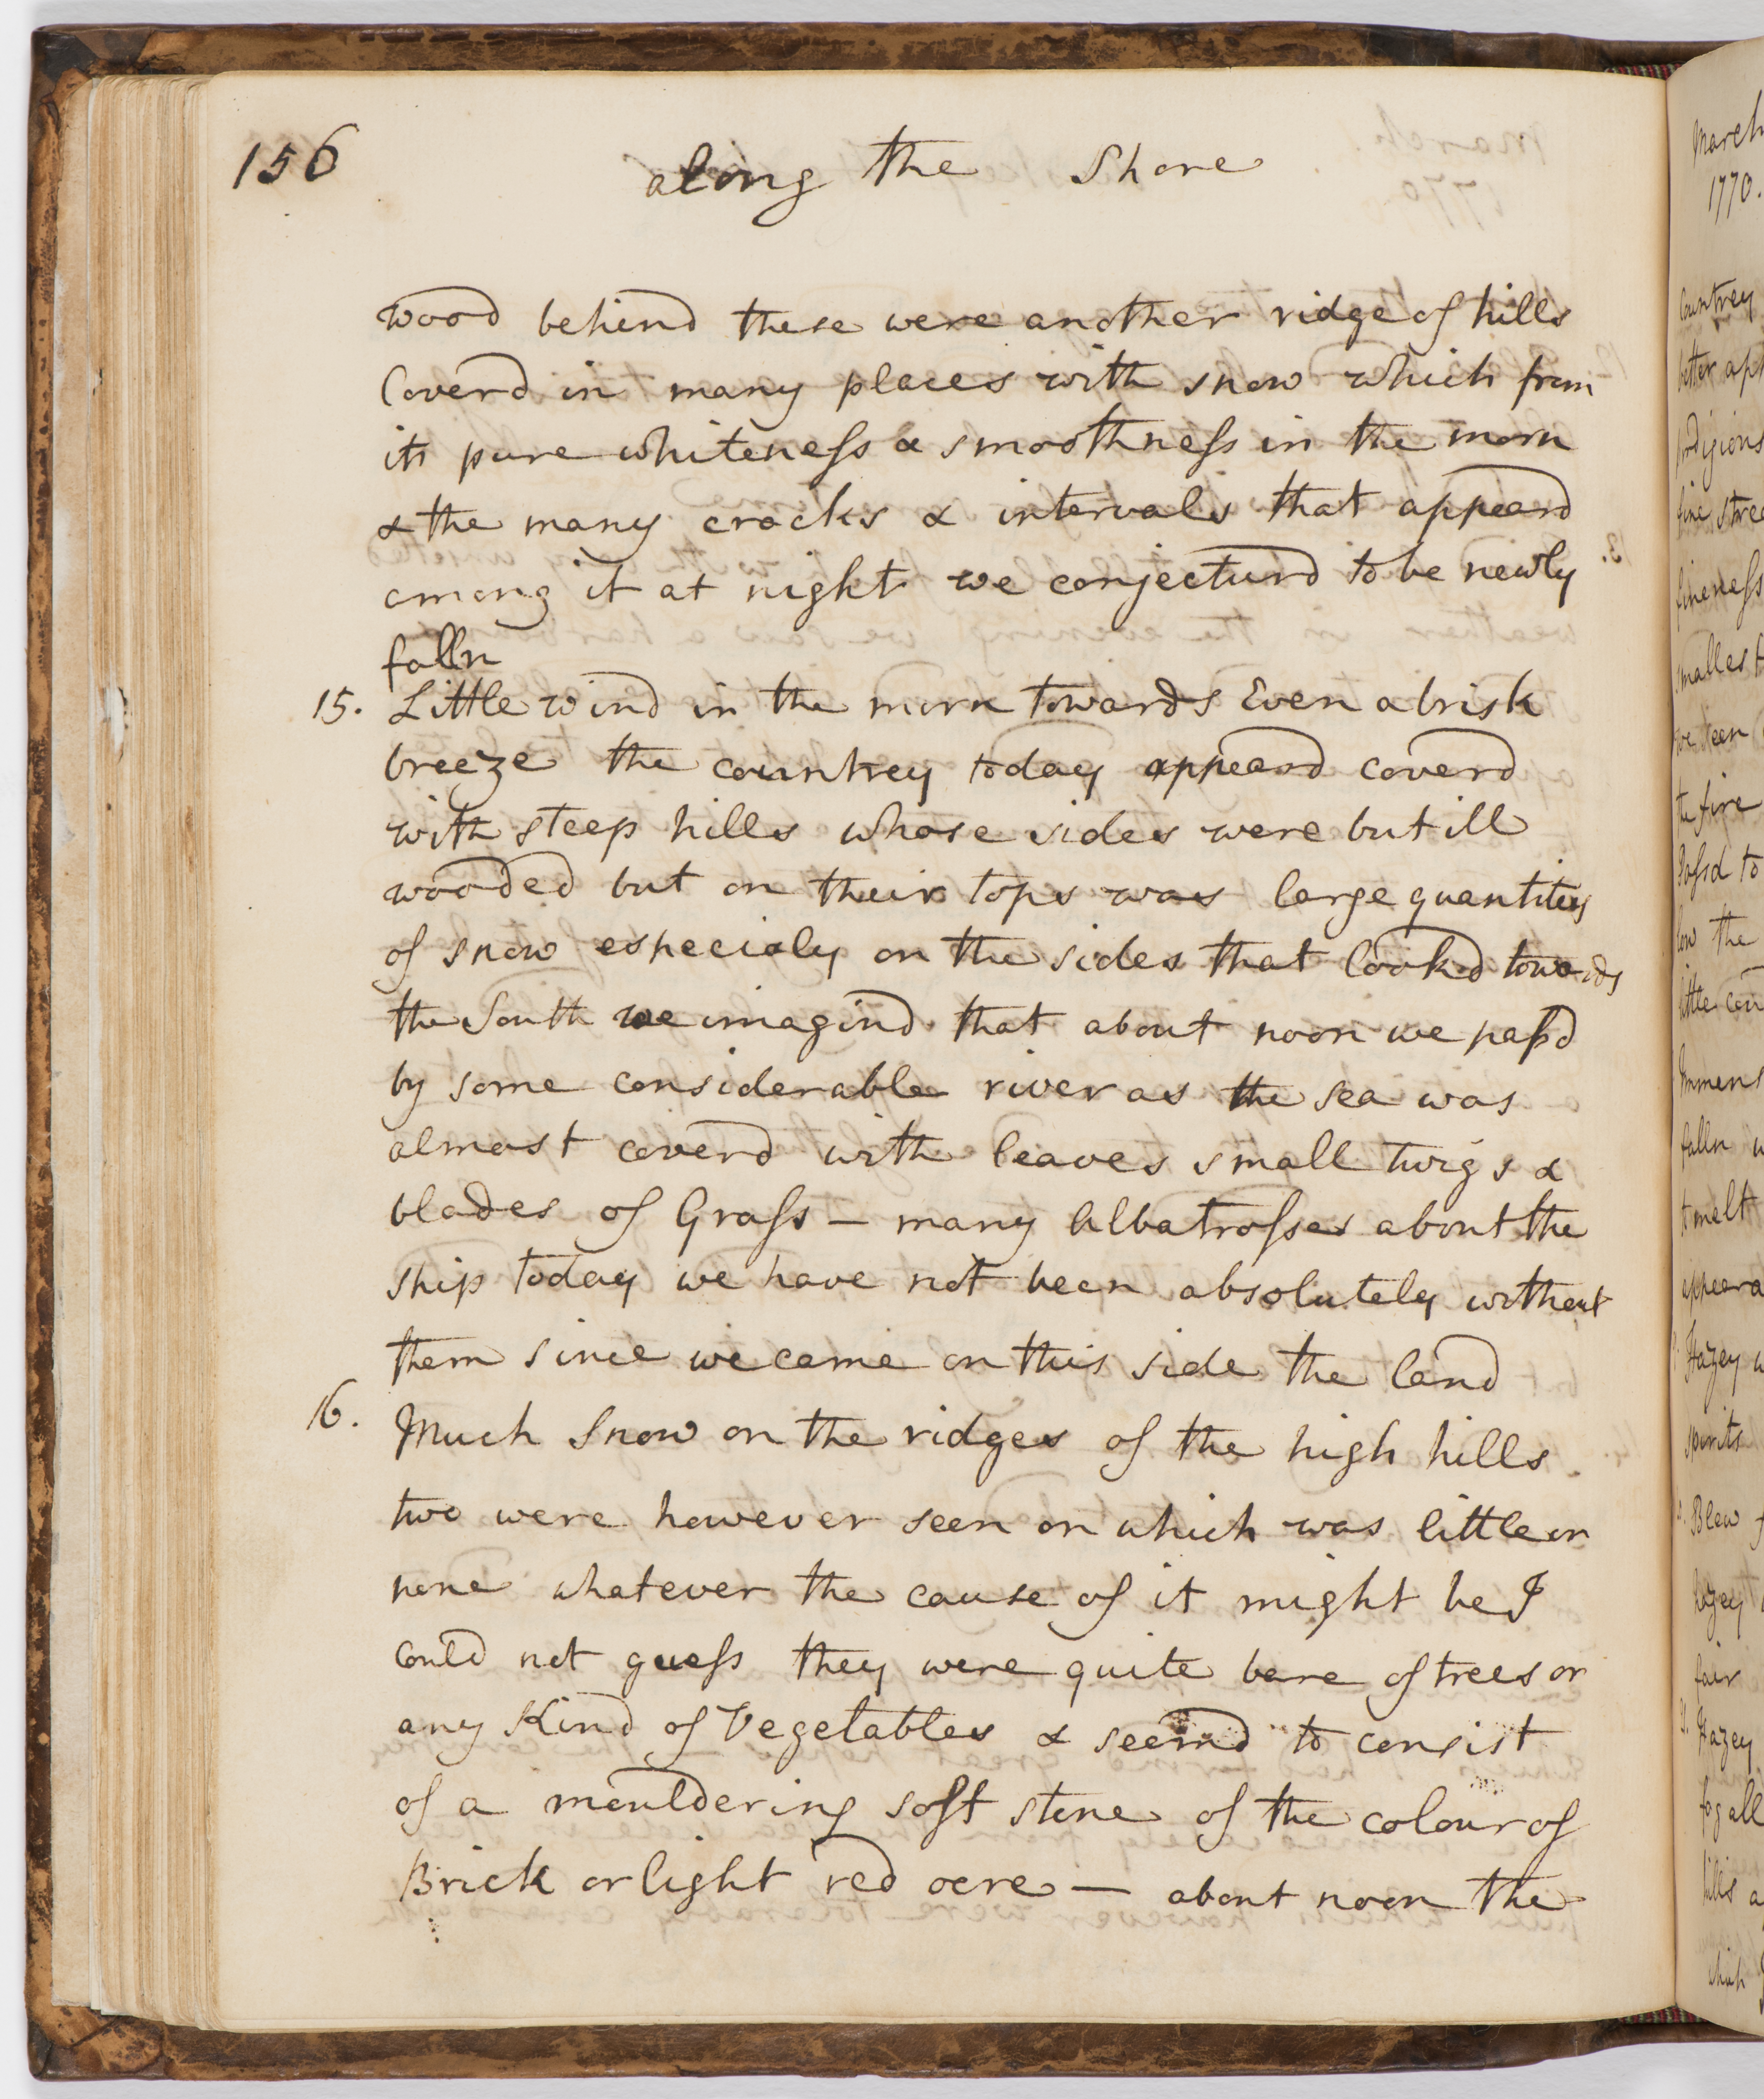 156
along the Shore
wood behind these were another ridge of hills
Coverd in many places with snow which from
its pure whiteness & smoothness in the morn
& the many cracks & intervals that appeard
among it at night we conjecturd to be newly
falln
15. Little wind in the morn towards Even a brisk
breeze the countrey today appeard coverd
with steep hills whose sides were but ill
wooded but on their tops was large quantitys
of snow especialy on the sides that lookd towards
the South we imagind that about noon we passd
by some considerable river as the sea was
almost coverd with leaves small twigs &
blades of Grass — many Albatrosses about the
ship today we have not been absolutely without
them since we came on this side the land
16. Much Snow on the ridges of the high hills
two were however seen on which was little or
none whatever the cause of it might be I
could not guess they were quite bare of trees or
any Kind of Vegetables & seemd to consist
of a mouldering soft stone of the colour of
Brick or light red ocre — about noon the
March
1770.
Countrey
better
fine
fineness
smallest
we seen
the fire
Passd to
low the
little
falln
to melt
Hazey
spirits
Blew
hazey
fair
Hazey
fog all
hills
which